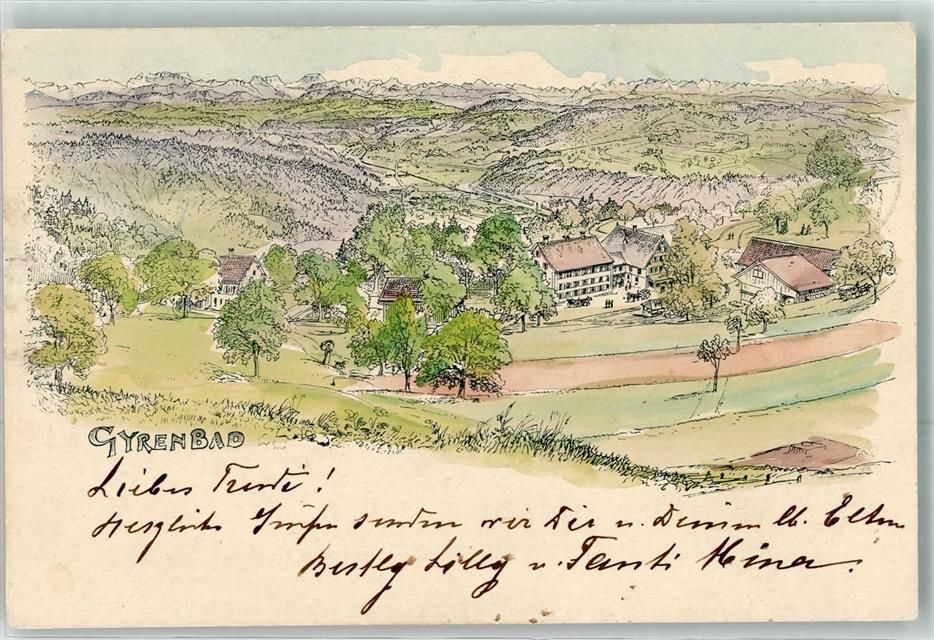 GYRENBAD
Liebes Trudi!
Herzliche Grüsse senden wir Dir u. Deinen lb. Eltern
Bertly Lilly u. Tanti Mina.